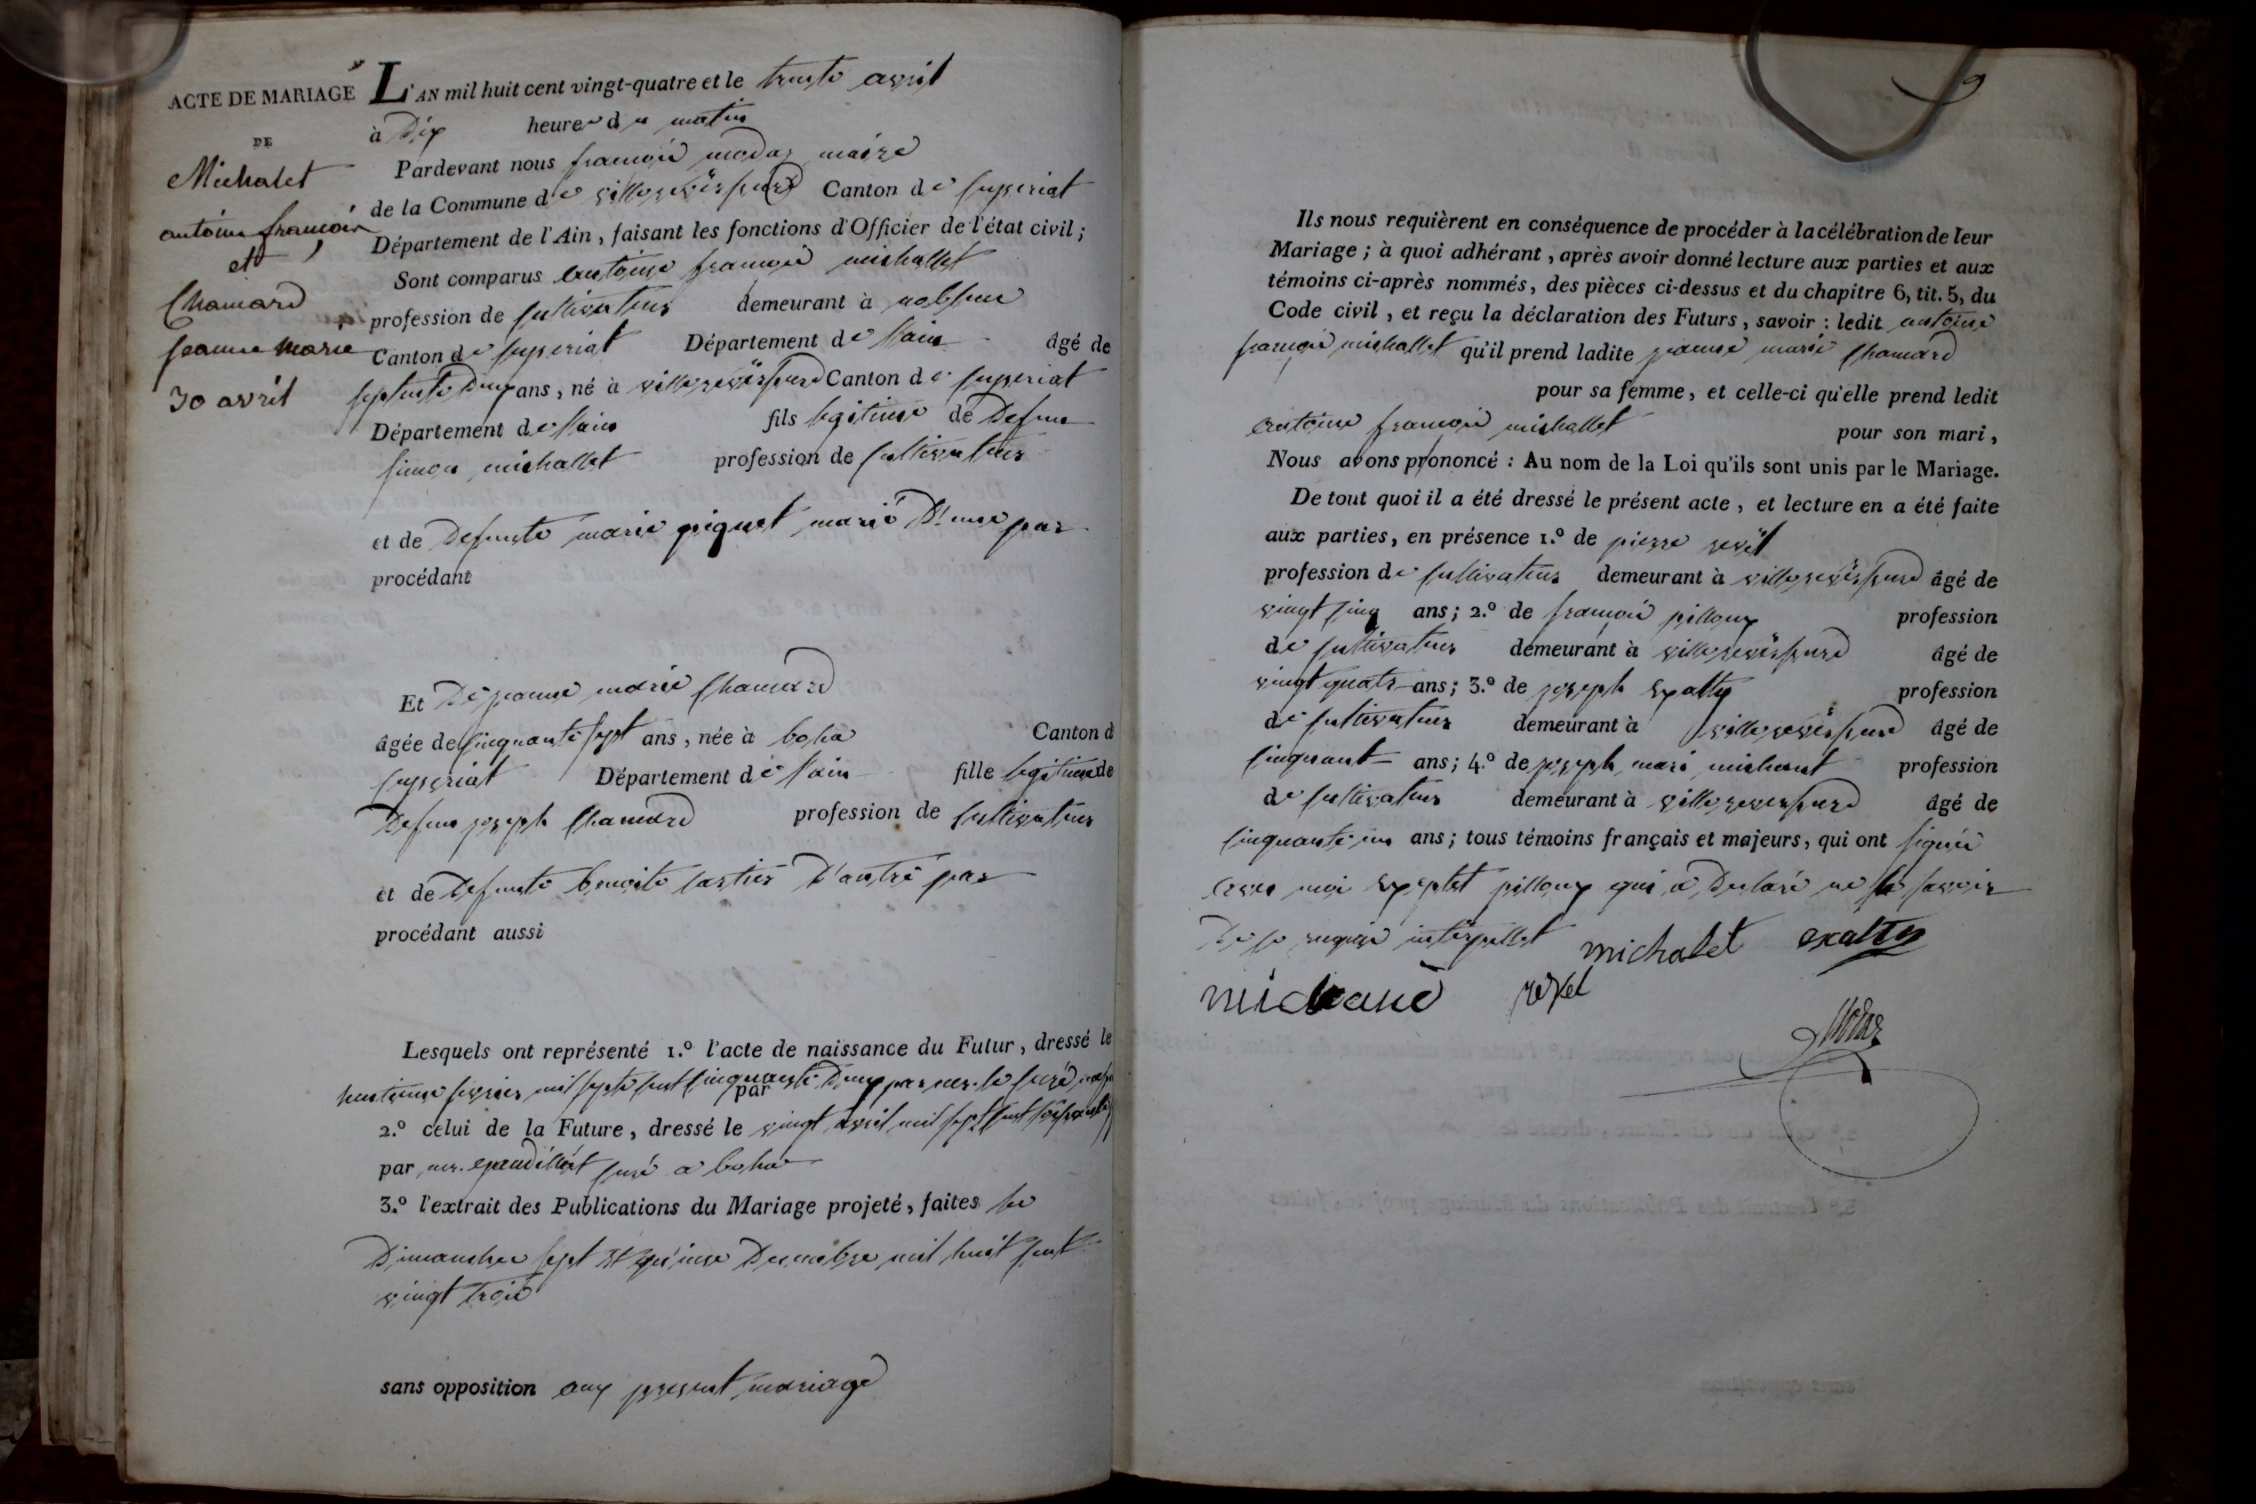 ACTE DE MARIAGE
DE
Michalet
antoine françois
et
Chanard
jeanne marie
30 avril
L'AN mil huit cent vingt-quatre et le trente avril
à Dix heures du matin
Pardevant nous françois modas maire
de la Commune de villereversure Canton de ceyzeriat
Département de l'Ain, faisant les fonctions d'Officier de l'état civil;
Sont comparus antoine françois michallet
profession de cultivateur demeurant à
Canton de ceyzeriat Département de l'ain âgé de
septente Deux ans, né à villereversure Canton de ceyzeriat
Département de l'ain fils legitime de Defun
simon michallet profession de cultivateur
et de Defunte marie piquet marié D'une par
procédant
Et De jeanne marie Chanard
âgée de cinquante sept ans, née à boha Canton d
ceyzeriat Département de l'ain fille legitime de
Defun joseph Chanard profession de cultivateur
et de Defunte benoite cartier D'autre par
procédant aussi
Lesquels ont représenté 1.º l'acte de naissance du Futur, dressé le
huitieme fevrier mil septe cent cinquante Deux par mr. le curé
par
2.º celui de la Future, dressé le vingt avril mil sept cent soixante
par mr. curé a boha
3.º l'extrait des Publications du Mariage projeté, faites le
Dimanches sept et quinse Decembre mil huit cent
vingt trois
sans opposition aux present mariage
9
Ils nous requièrent en conséquence de procéder à la célébration de leur
Mariage; à quoi adhérant, après avoir donné lecture aux parties et aux
témoins ci-après nommés, des pièces ci-dessus et du chapitre 6, tit. 5, du
Code civil, et reçu la déclaration des Futurs, savoir : ledit antoine
françois michallet qu'il prend ladite jeanne marie Chanard
pour sa femme, et celle-ci qu'elle prend ledit
antoine françois michallet pour son mari,
Nous avons prononcé : Au nom de la Loi qu'ils sont unis par le Mariage.
De tout quoi il a été dressé le présent acte, et lecture en a été faite
aux parties, en présence 1.º de pierre revel
profession de cultivateur demeurant à villereversure âgé de
vingt cinq ans; 2.º de françois pilloux profession
de cultivateur demeurant à villereversure âgé de
vingt quatr ans; 3.º de joseph exalty profession
de cultivateur demeurant à villereversure âgé de
cinquant ans; 4.º de joseph mari michaut profession
de cultivateur demeurant à villereversure âgé de
cinquante un ans; tous témoins français et majeurs, qui ont signée
avec moi exeptet pilloux qui a Declaré ne le savoir
De ce requis interpellet michalet exalty
michaud revel
Modas